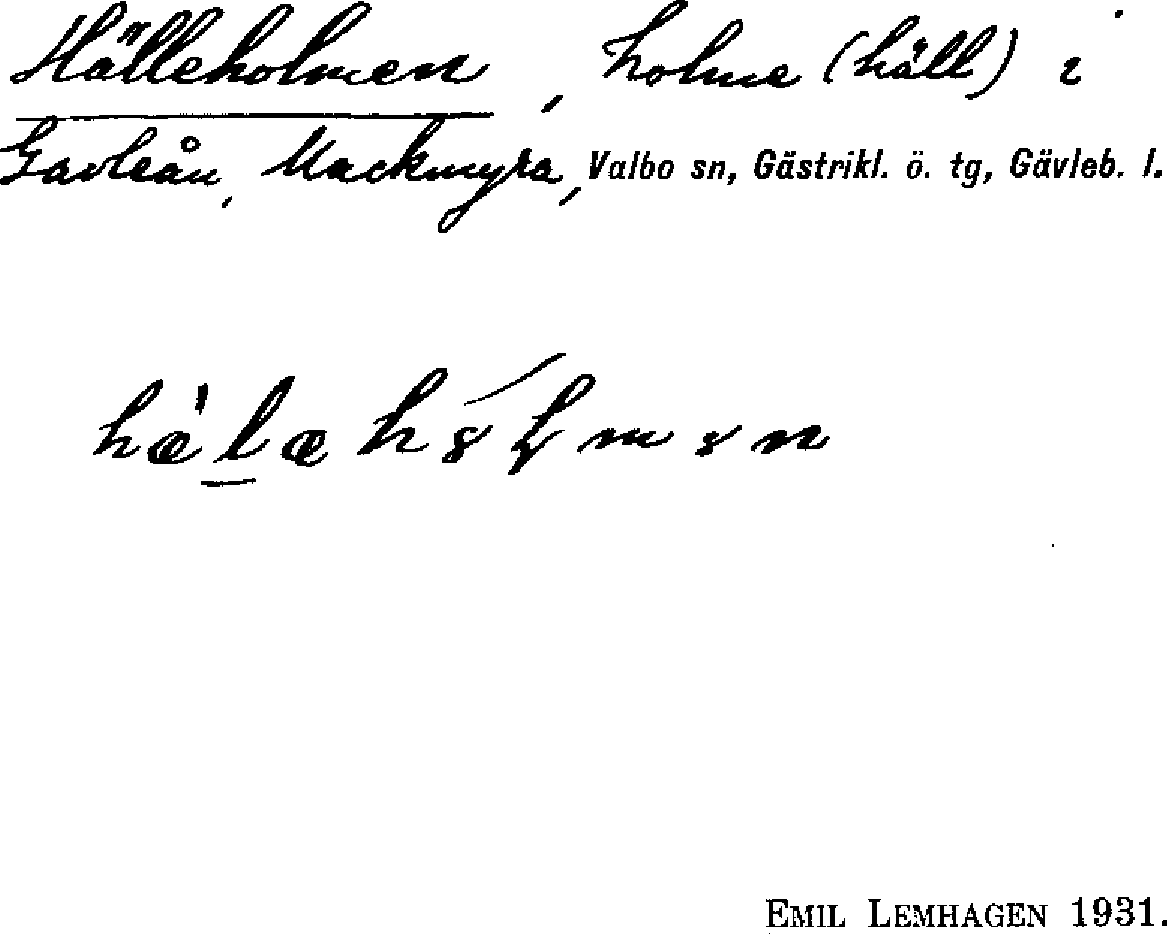 Hälleholmen, holme (häll) i
Gavleån, Mackmyra, Valbo sn, Gästrikl. ö. tg, Gävleb. l.
EMIL LEMHAGEN 1931.